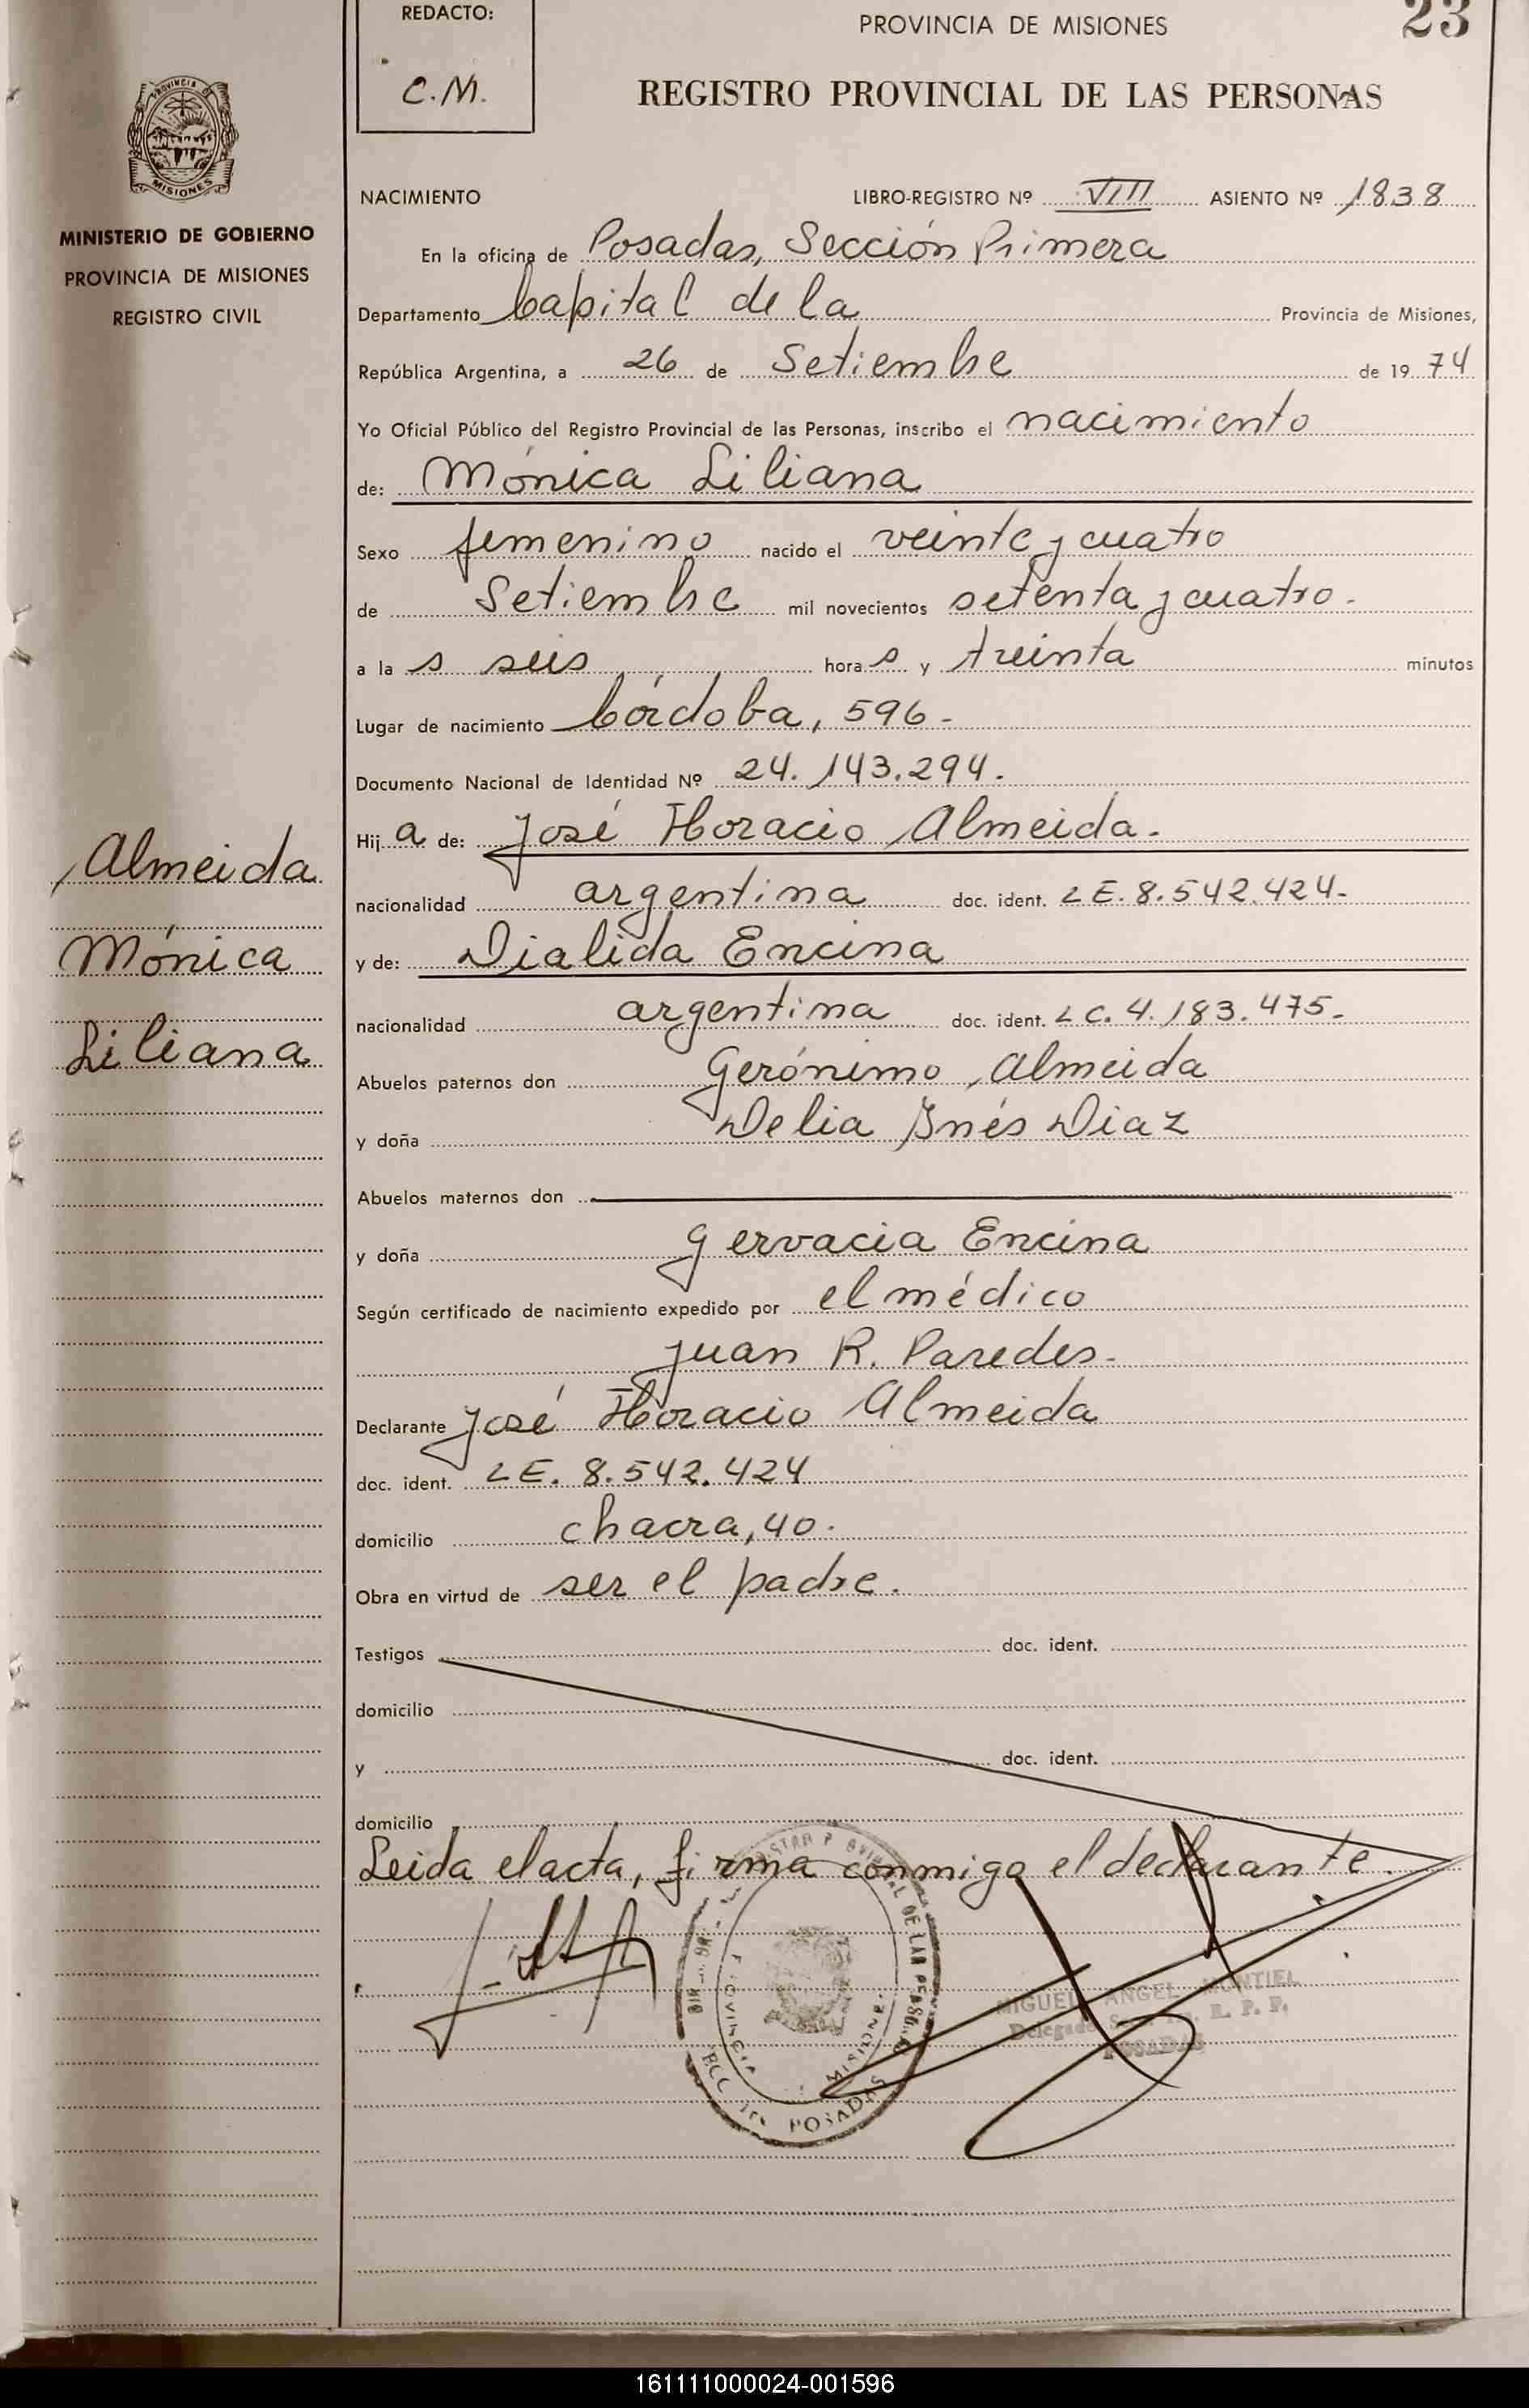 REDACTO:
C.M.
PROVINCIA DE MISIONES
23
REGISTRO PROVINCIAL DE LAS PERSONAS
PROVINCIA DE
MISIONES
MINISTERIO DE GOBIERNO
PROVINCIA DE MISIONES
REGISTRO CIVIL
NACIMIENTO LIBRO-REGISTRO Nº VIII ASIENTO Nº 1838
En la oficina de Posadas, Sección Primera
Departamento Capital de la Provincia de Misiones,
República Argentina, a 26 de Setiembre de 1974
Yo Oficial Público del Registro Provincial de las Personas, inscribo el nacimiento
de: Mónica Liliana
Sexo femenino nacido el veinte y cuatro
de Setiembre mil novecientos setenta y cuatro.
a la s seis hora s y treinta minutos
Lugar de nacimiento Córdoba, 596-
Documento Nacional de Identidad Nº 24.143.294.
Hij a de: José Horacio Almeida.
nacionalidad argentina doc. ident. LE. 8.542.424-
y de: Dialida Encina
nacionalidad argentina doc. ident. LC. 4.183.475-
Abuelos paternos don Gerónimo Almeida
y doña Delia Inés Diaz
Abuelos maternos don
y doña Gervacia Encina
Según certificado de nacimiento expedido por el médico
Juan R. Paredes-
Declarante José Horacio Almeida
doc. ident. LE. 8.542.424
domicilio chacra, 40.
Obra en virtud de ser el padre.
Testigos doc. ident.
domicilio
y doc. ident.
domicilio
Leida el acta, firma conmigo el declarante.
Almeida
Mónica
Liliana
DE LAS PERSONAS
PROVINCIA MISIONES
POSADAS
MIGUEL ANGEL MONTIEL
Delegado R. P. P.
POSADAS
161111000024-001596